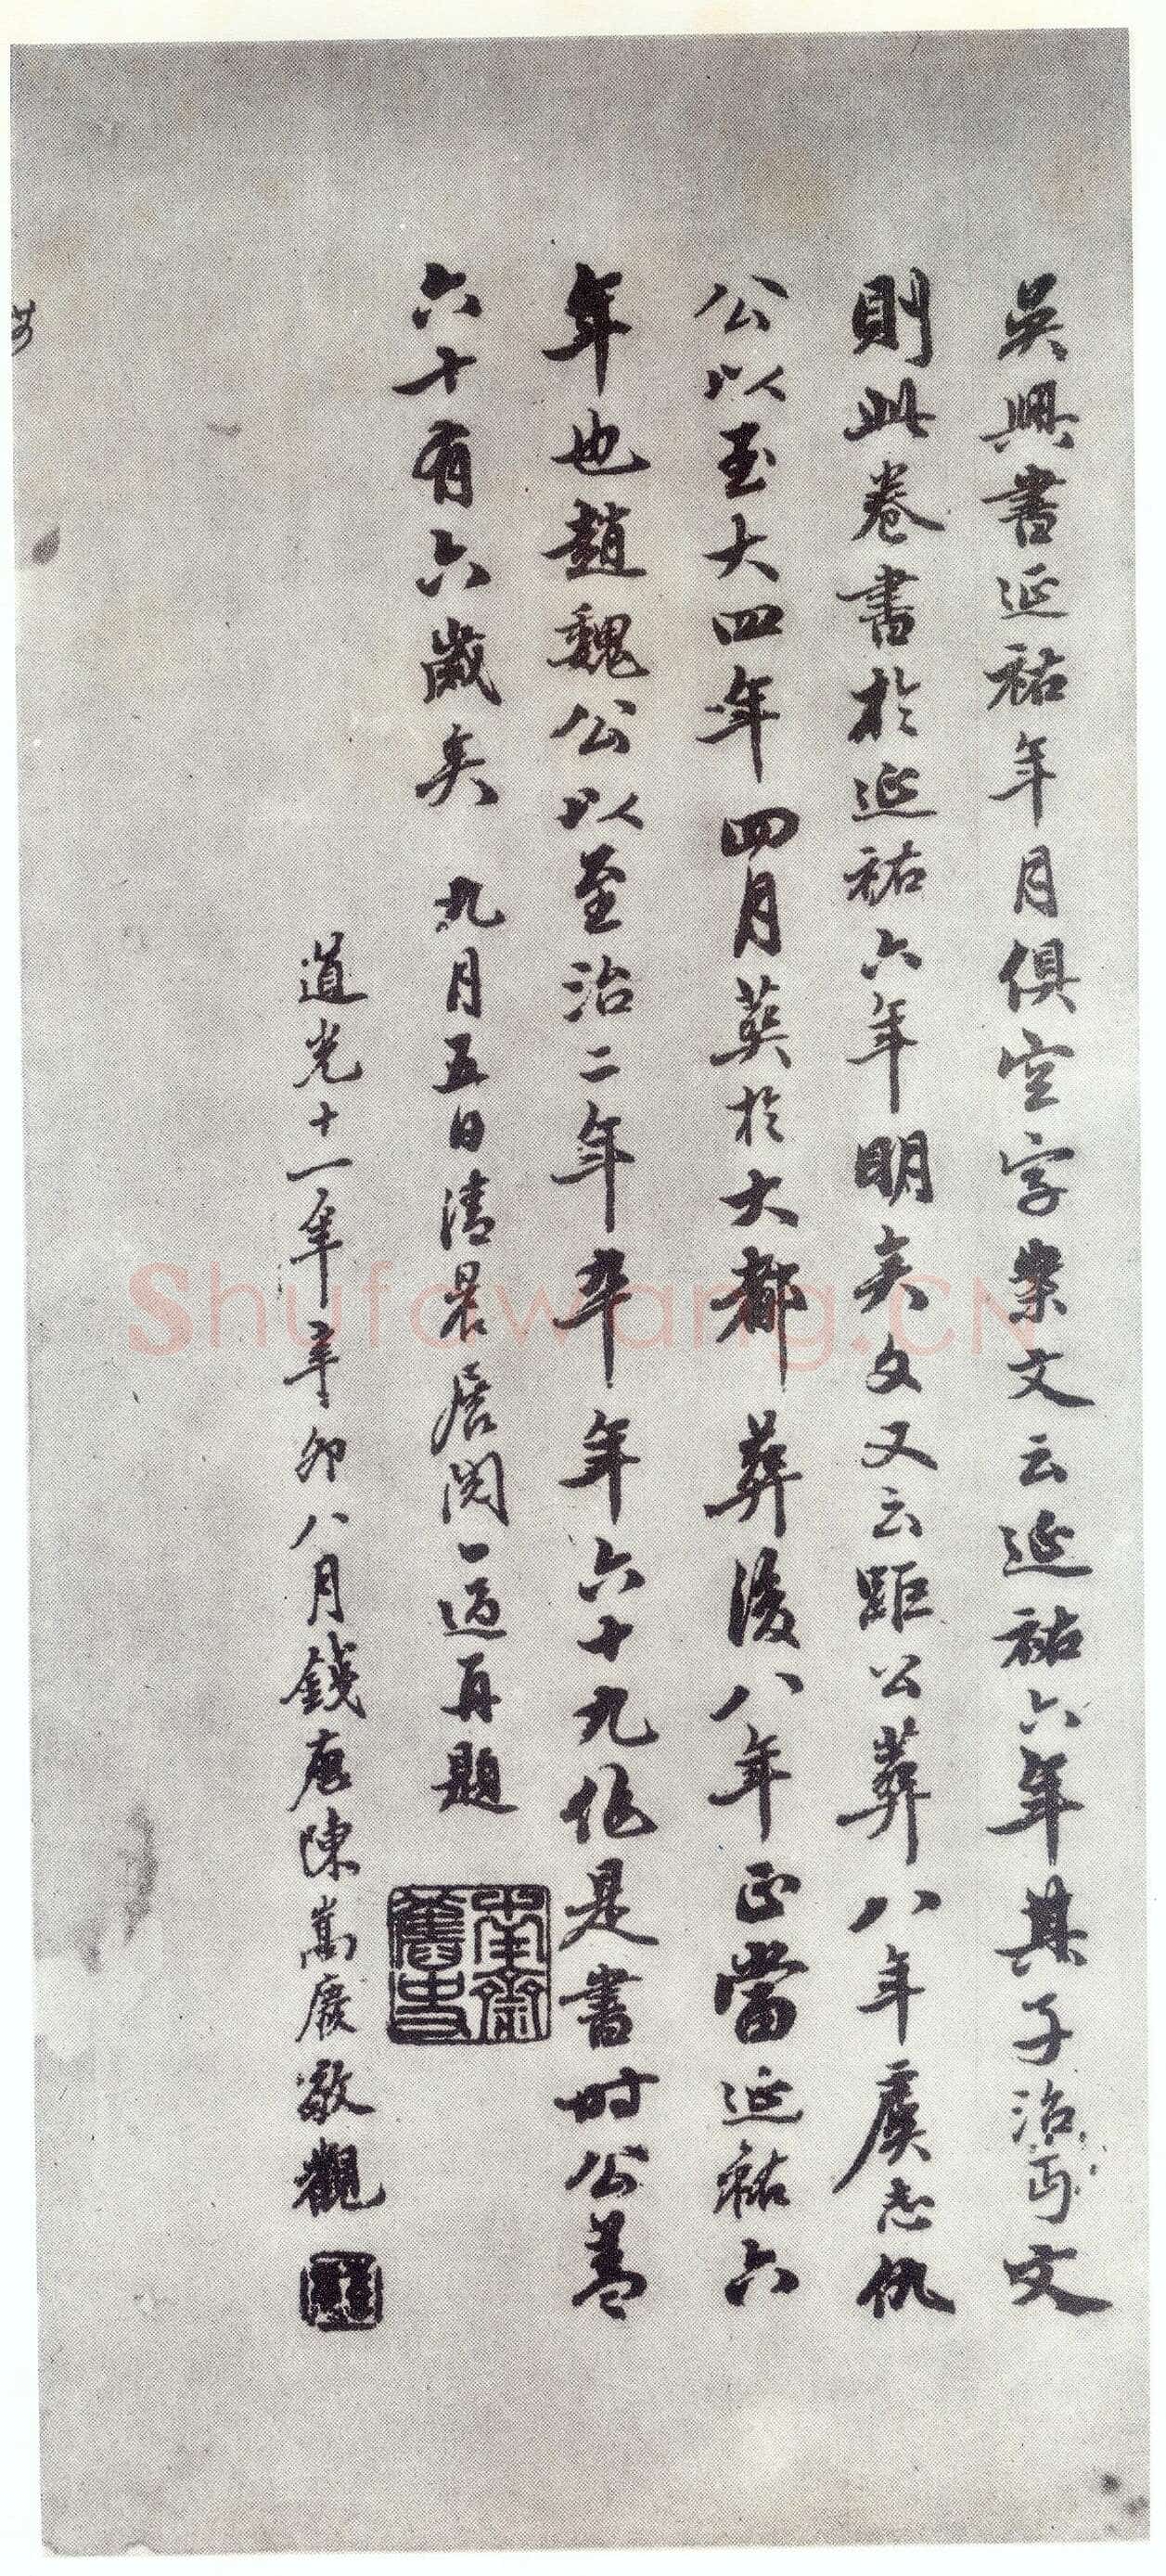 吳興書延祐年月俱空字案文云延祐六年其子治丐文
則此卷書於延祐六年明矣文又云距公葬八年虞志仇
公以至大四年四月葬於大都葬後八年正當延祐六
年也趙魏公以至治二年卒年六十九作是書時公蓋
六十有六歲矣 九月五日清晨展閱一過再題
南齋舊史
道光十一年辛卯八月錢唐陳嵩慶敬觀
Shufawang.CN